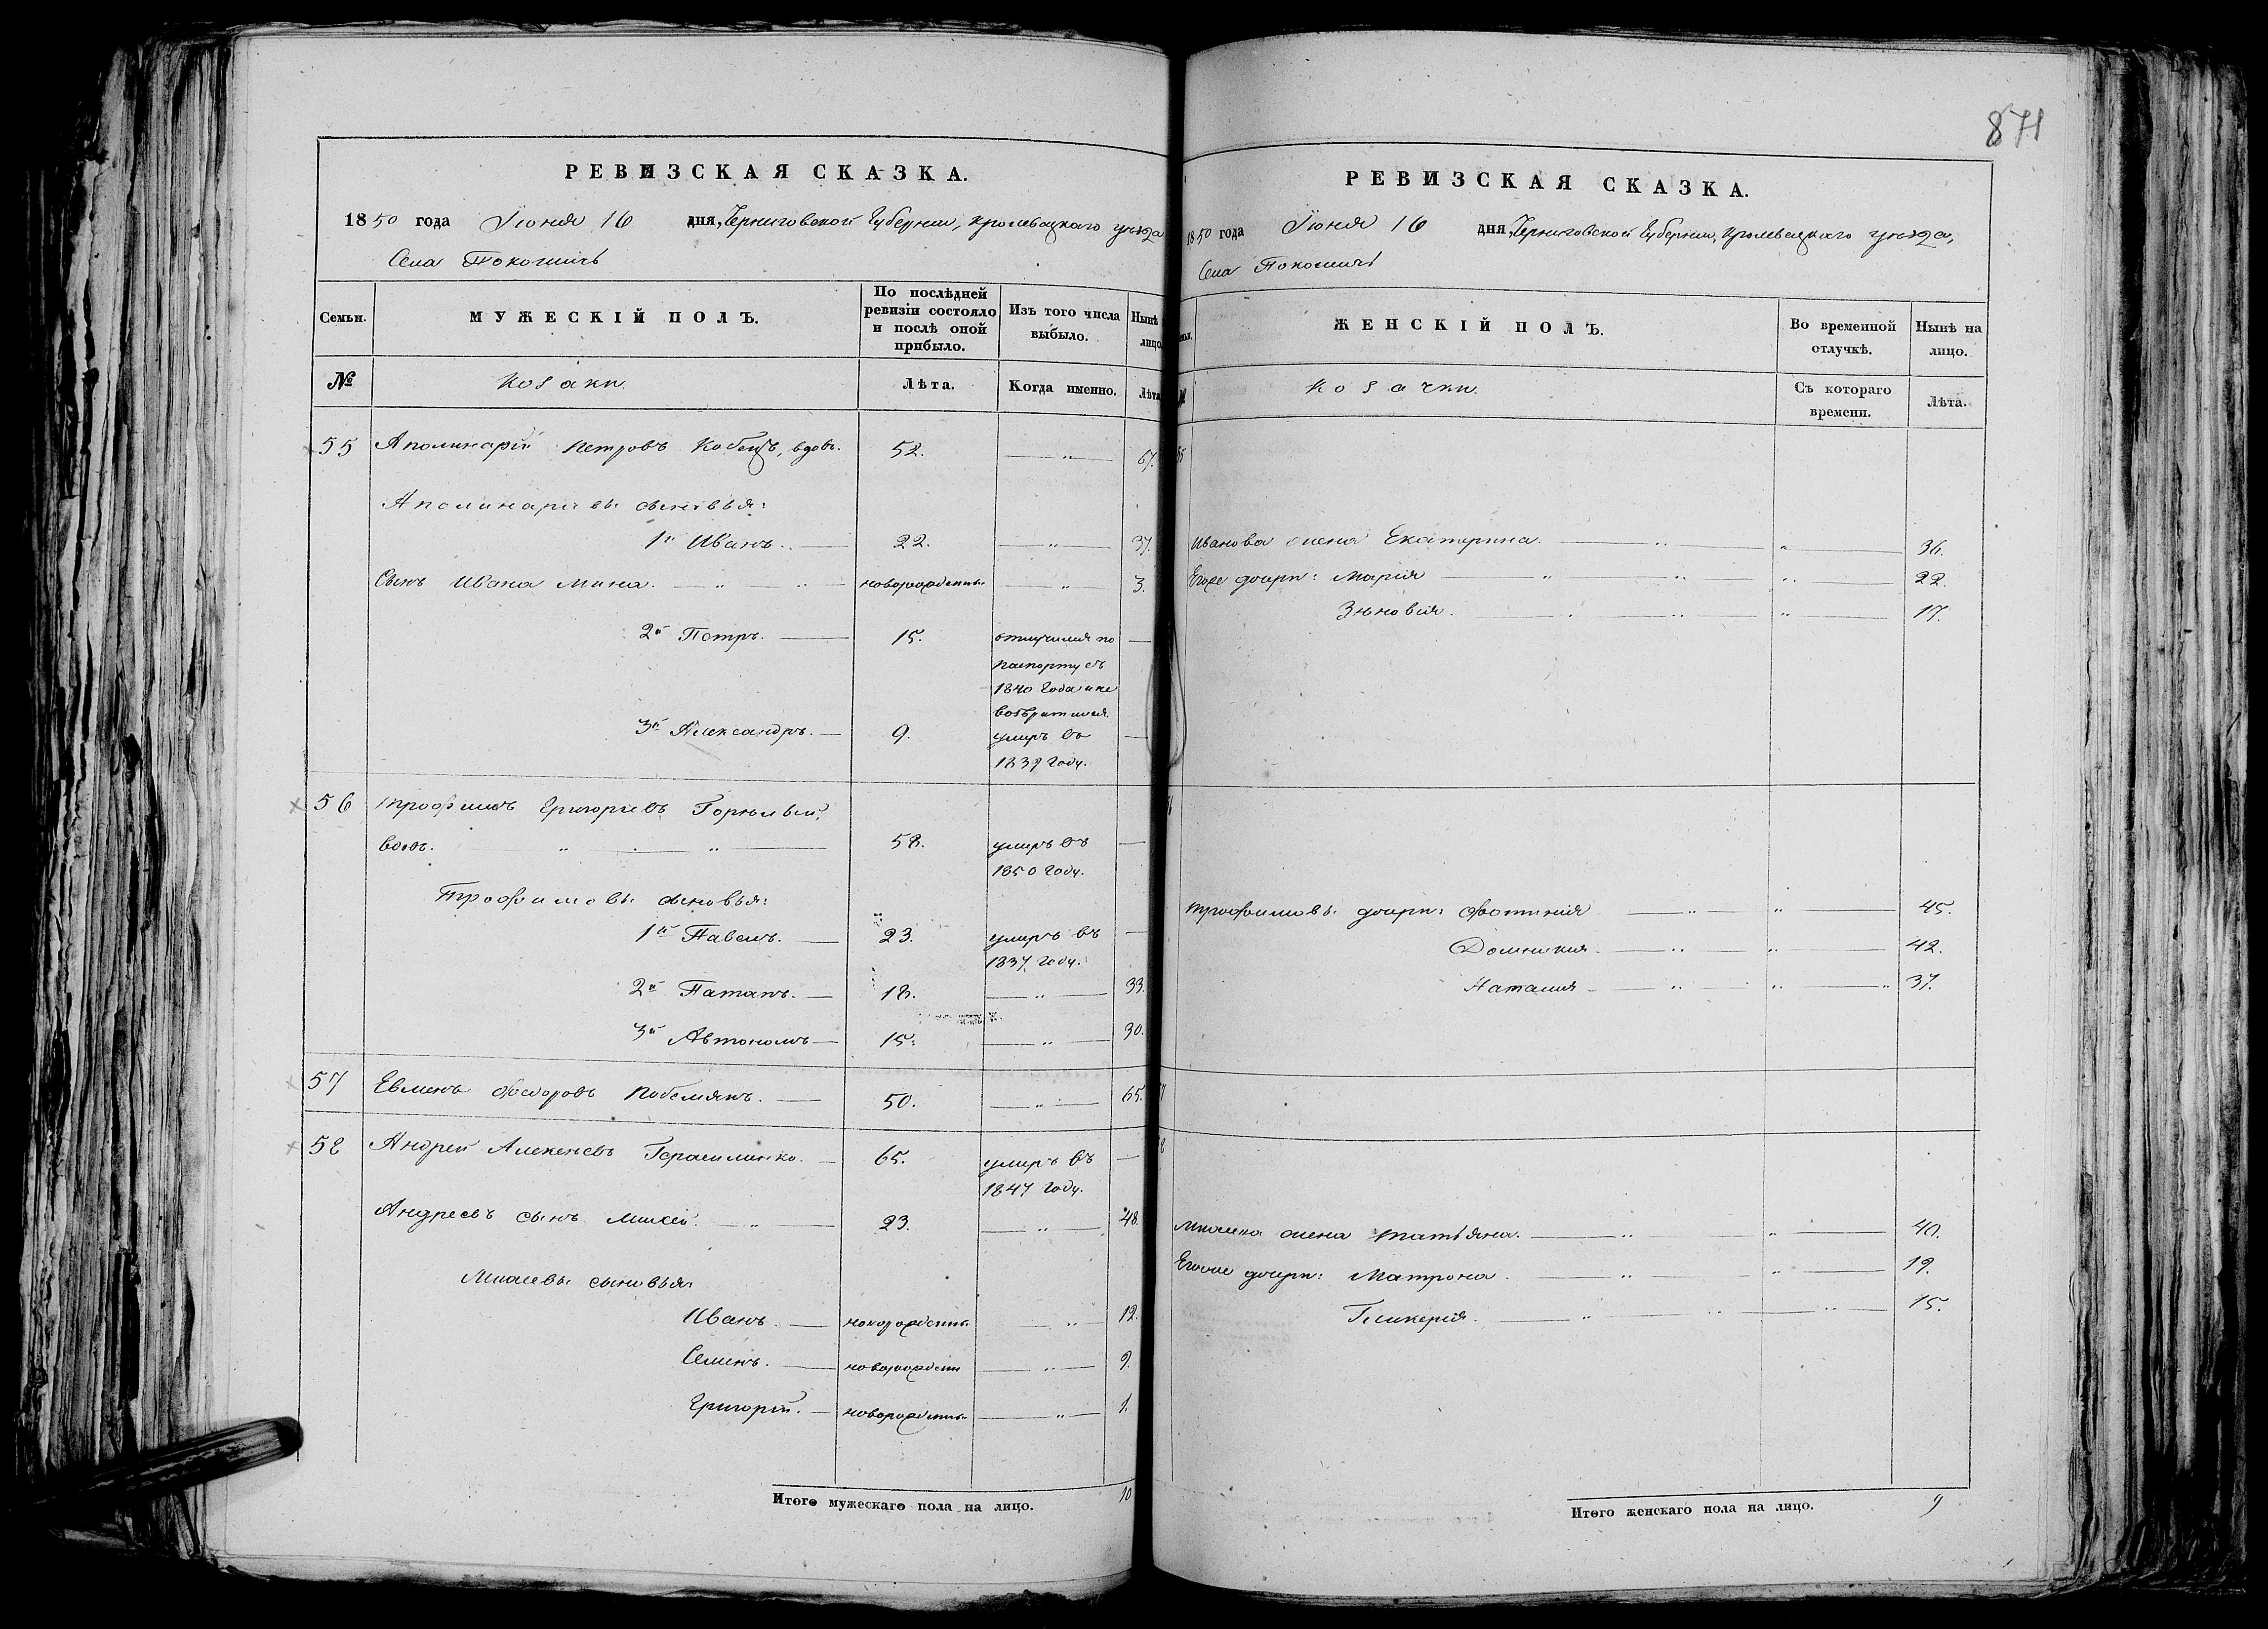 871
РЕВИЗСКАЯ СКАЗКА.
1850 года Іюня 16 дня, Черниговской Губерніи, Кролевецкаго уѣзда
Села Покошичь
Семьи. МУЖЕСКІЙ ПОЛЪ. По послѣдней ревизіи состояло и послѣ оной прибыло. Изъ того числа выбыло. Нынѣ лицо
№ Козаки. Лѣта. Когда именно. Лѣта
55 Аполинарій Петровъ Кобецъ, вдовъ. 52. — „ — 67.
Аполинаріевы сыновья:
1й Иванъ. — 22. — „ — 37.
Сынъ Ивана Мина. — „ — новорожденны — „ — 3.
2й Петръ. — 15. отлучился по —
паспорту съ
1840 года и не
возвратился.
3й Александръ. — 9. умеръ въ —
1839 году.
56 Трофимъ Григорьевъ Горѣлый,
вдовъ. — „ — „ — 58. умеръ въ —
1850 году.
Трофимовы сыновья:
1й Павелъ. — 23. умеръ въ —
1837 году.
2й Патапъ. — 18. — „ — 33.
3й Автономъ — 15. — „ — 30.
57 Евменъ Ѳедоровъ — 50. — „ — 65.
58 Андрей Алексѣевъ Герасименко. — 65. умеръ въ —
1847 году.
Андреевъ сынъ — „ — 23. — „ — 48.
сыновья:
Иванъ. — новорожденны — „ — 12.
Семенъ. — новорожденн — „ — 9.
Григорій. — новорожденны — „ — 1.
Итого мужескаго пола на лицо. 10
РЕВИЗСКАЯ СКАЗКА.
1850 года Іюня 16 дня, Черниговской Губерніи, Кролевецкаго уѣзда,
Села Покошичь
ЖЕНСКІЙ ПОЛЪ. Во временной отлучкѣ. Нынѣ на лицо.
№ Козачки. Съ котораго времени. Лѣта.
55
Иванова жена Екатерина. — „ — „ — 36.
Егоже дочери: Марія — „ — „ — 22.
Зѣновія. — „ — „ — 17.
Трофимовы дочери: Фотинія — „ — „ — 45.
Домникія. — „ — „ — 42.
Наталия — „ — „ — 37.
жена Татьяна. — „ — „ — 40.
Егоже дочери: Матрона. — „ — „ — 19.
Гликерія. — „ — „ — 15.
Итого женскаго пола на лицо. 9